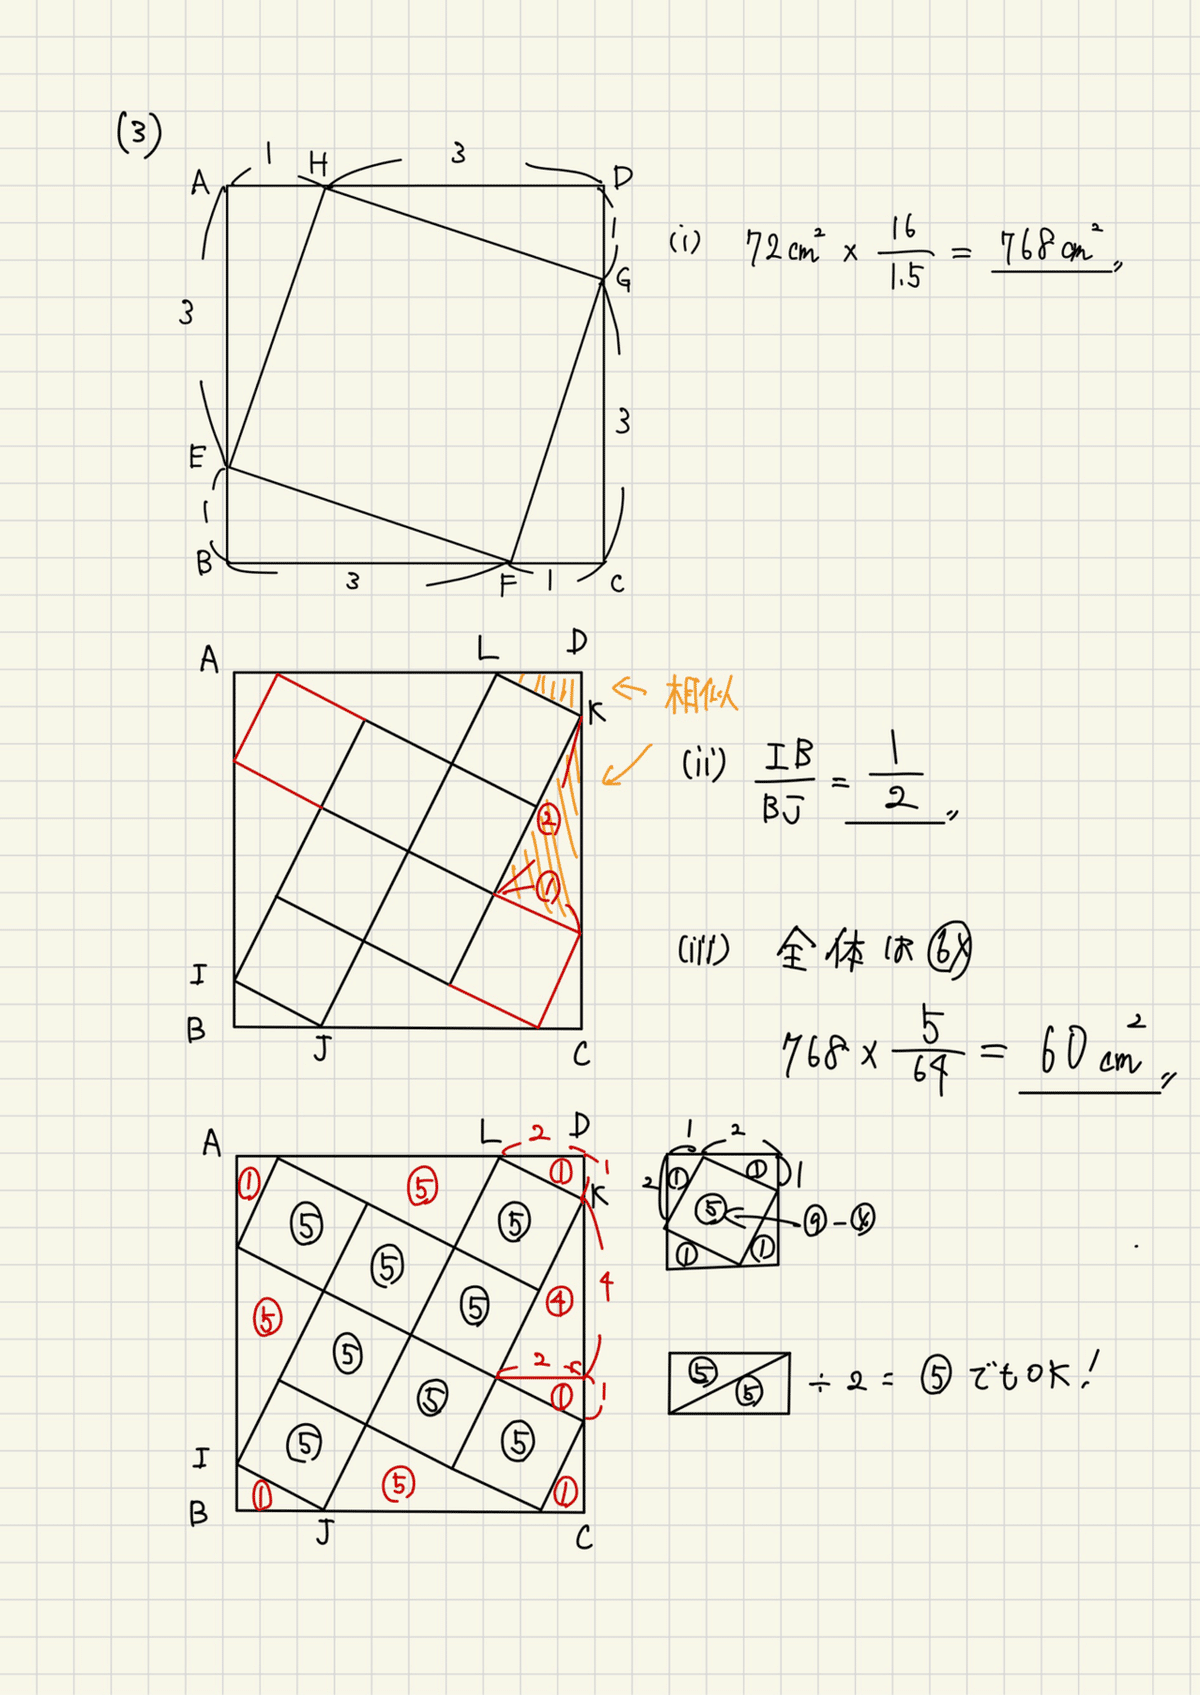 (3)
1 H 3
A D
1
(i) 72cm² × 16/1.5 = 768cm²
G
3
3
E
1
B 3 F 1 C
L D
A
← 相似
K
(ii) IB/BJ = 1/2
②
①
(iii) 全体は 64
I
B
J C
768 × 5/64 = 60cm²
L 2 D
A 1
K
① ⑤ ①
⑤ ⑤
⑤
⑤ 4
⑤ ④
⑤ ⑤ 2
① 1
⑤ ⑤
I
① ⑤ ①
B
J C
1 2
2 ① ① 1
⑤ ← ⑨-④
① ①
⑤ ⑤ ÷ 2 = ⑤ でもOK!